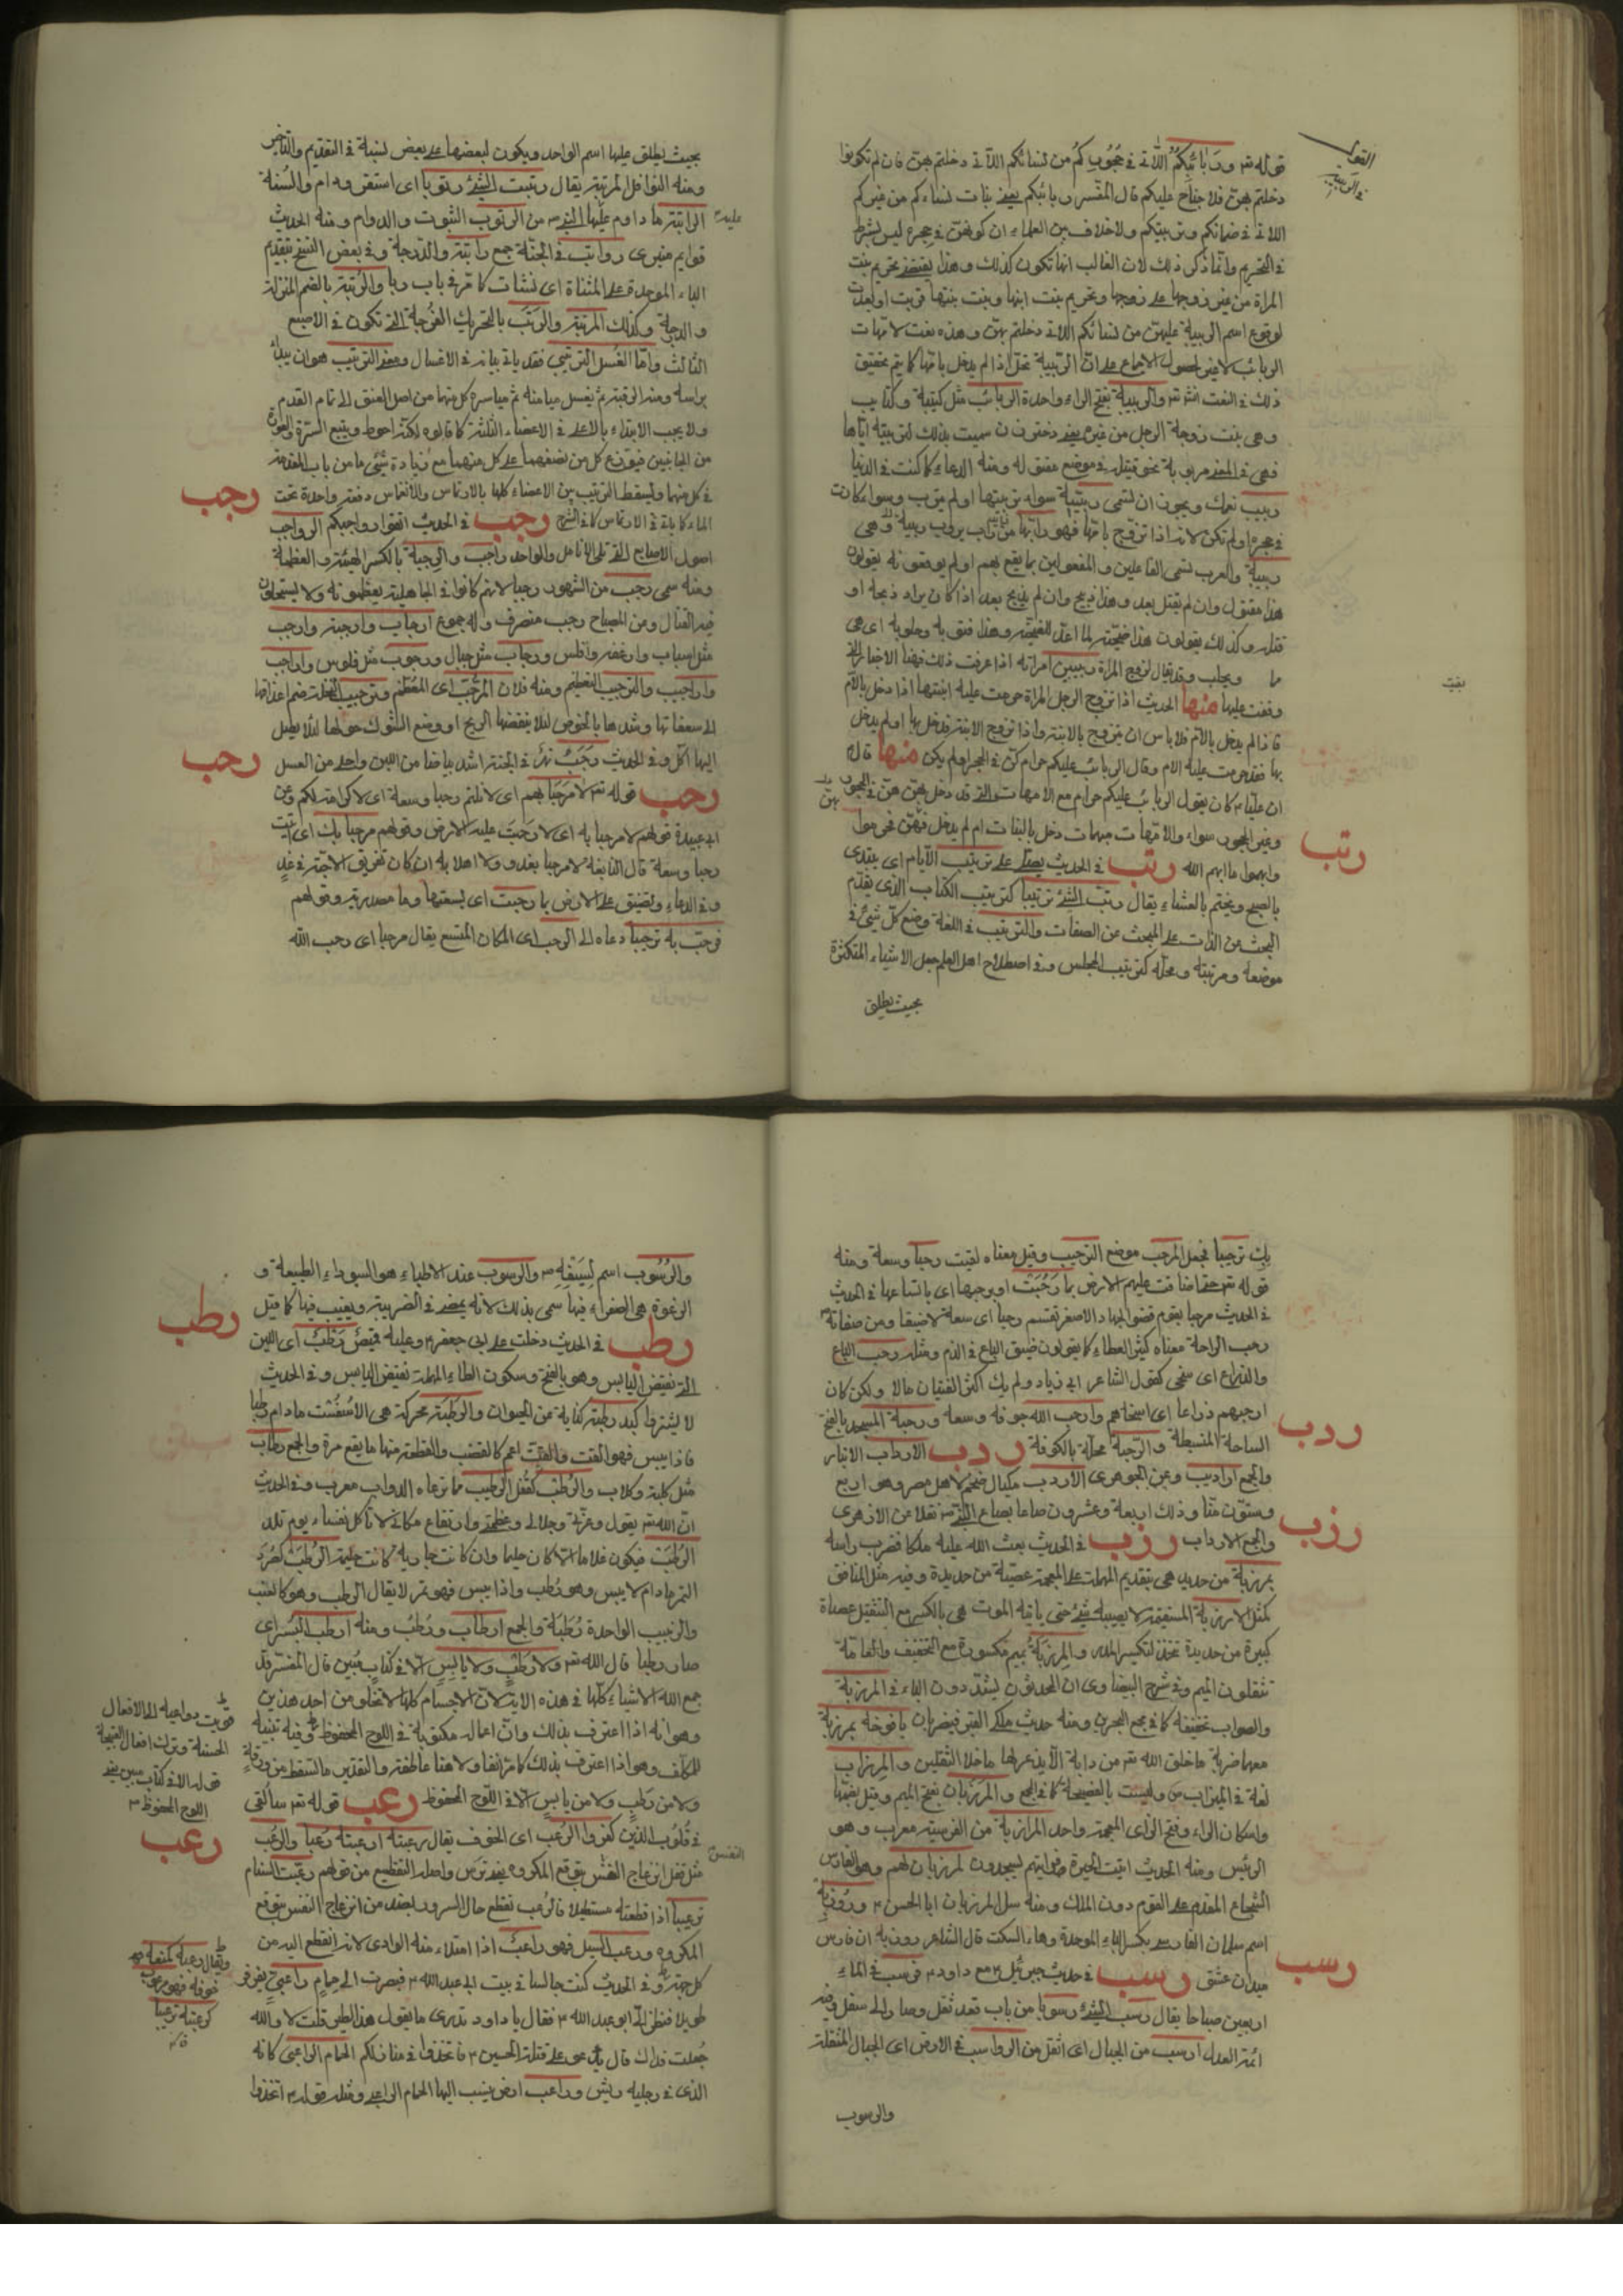 قوله تع وربائبكم اللاتي في حجوركم من نسائكم اللاتي دخلتم بهن فان لم تكونوا
دخلتم بهن فلا جناح عليكم قال المفسر ربائبكم يعني بنات نسائكم من غيركم
اللاتي في ضمانكم وتربيتكم ولا خلاف بين العلماء ان كونهن في حجره ليس بشرط
في التحريم وانما ذكر ذلك لان الغالب انها تكون كذلك وهذا يقتضي تحريم بنت
المراة من غير زوجها على زوجها وتحريم بنت ابنها وبنت بنتها قربت او بعدت
لوقوع اسم الربيبة عليهن من نسائكم اللاتي دخلتم بهن وهذه نعت لامهات
الربائب لا غير لحصول الاجماع على ان الربيبة تحل اذا لم يدخل بامها كما يتم تحقيق
ذلك في النعت انش تع والربيبة بفتح الراء واحدة الربائب مثل كتيبة وكتايب
وهي بنت زوجة الرجل من غيره يعني دختر زن سميت بذلك لتربيته اياها
فهي في المعنى مربوبة نحو قتيلة في موضع مقتولة ومنه الدعاء كما كنت في الدنيا
ربيب نعمك ويجوز ان تسمى ربيبة سواء تربيتها او لم يترب وسواء كانت
في حجره او لم تكن لانه اذا تزوج بامها فهو رابها من رب يرب ربيبة وهي
ربيبة والعرب تسمي الفاعلين والمفعولين بما يقع بهم او لم يوقعونه يقولون
هذا مقتول وان لم يقتل بعد وهذا ذبيح وان لم يذبح بعد اذا كان يراد ذبحه او
قتله وكذلك يقولون هذا ضحية لما اعد للتضحية وهذا قتوبة وحلوبة اي هي
مما ويحلب وقد يقال لزوج المراة ربيبين امراته اذا عرفت ذلك فهنا الاخبار التي
وقفت عليها منها الحديث اذا تزوج الرجل المراة حرمت عليه ابنتها اذا دخل بالام
فاذا لم يدخل بالام فلا باس ان يتزوج بالابنة واذا تزوج الابنة فدخل بها او لم يدخل
بها فقد حرمت عليه الام وقال الربائب عليكم حرام كن في الحجر او لم يكن منها قال
ان عليا ع كان يقول الربائب عليكم حرام مع الامهات التي قد دخل بهن هن في الحجور
وغير الحجور سواء والامهات مبهمات دخل بالبنات ام لم يدخل فيهن فحرموا
وابهموا ما ابهم الله رتب في الحديث يصلي على ترتيب الايام اي يبتدى
بالصبح ويختم بالعشاء يقال رتب الشئ ترتيبا كترتيب الكتاب الذي يقدم
البحث عن الذات على البحث عن الصفات والترتيب في اللغة وضع كل شئ في
موضعه ومرتبته ومحله كترتيب المجلس وفي اصطلاح اهل العلم جعل الاشياء المتكثرة
بحيث يطلق
رتب
بحيث يطلق عليها اسم الواحد ويكون لبعضها على بعض نسبة في التقديم والتاخير
ومنه النوافل المرتبة يقال رتبت الشئ رتوبا اي استقر ودام والسنة
الراتبة ما داوم عليها النبي ص من الرتوب الثبوت والدوام ومنه الحديث
قوايم منبري رواتب في الجنة جمع راتبة والدرجة وفي بعض النسخ بتقديم
الباء الموحدة على المثناة اي نشات كما مر في باب ربا والرتبة بالضم المنزلة
والدرجة وكذلك المرتبة والرتب بالتحريك الفرجة التي تكون في الاصبع
الثالث واما الغسل الترتيبي فقد ياتي بيانه في الاغسال ومعنى الترتيب هو ان يبدأ
براسه ومنه الرقبة ثم يغسل ميامنه ثم مياسره كل منهما من اصل العنق الى تمام القدم
ولا يجب الابتداء بالاعلى في الاعضاء الثلثة كما قالوه لكنه احوط ويتبع السرة والعورة
من الجانبين فيوزع كل من نصفهما على كل منهما مع زيادة شئ ما من باب المقدمة
في كل منهما ويسقط الترتيب بين الاعضاء كلها بالارتماس والانغماس دفعة واحدة تحت
الماء كما ياتي في الارتماس كما في الشرح رجب في الحديث انقوا رواجبكم الرواجب
اصول الاصابع التي تلي الانامل والواحد راجب والرجبة بالكسر الهيئة والعظمة
ومنه سمي رجب من الشهور رجبا لانهم كانوا في الجاهلية يعظمونه ولا يستحلون
فيه القتال وعن المصباح رجب منصرف وله جموع ارجاب وارجبة وارجب
مثل اسباب وارغفة وافلس ورجاب مثل جبال ورجوب مثل فلوس واراجب
واراجيب والترجيب التعظيم ومنه فلان المرجب اي المعظم وترجيب النخلة ضم اعذاقها
الى سعفاتها وشدها بالخوص لئلا ينفضها الريح او وضع الشوك حولها لئلا يصل
اليها اكل وفي الحديث رجب نهر في الجنة اشد بياضا من اللبن واحلى من العسل
رحب قوله تع لا مرحبا بهم اي لا نلتم رحبا وسعة اي لا كرامة لكم وعن
ابي عبيدة قولهم لا مرحبا به اي لا رحبت عليه الارض وقولهم مرحبا بك اي اتيت
رحبا وسعة قال النابغة لا مرحبا بغد ولا اهلا به ان كان تفريق الاحبة في غد
وفي الدعاء وتضيق على الارض بما رحبت اي بسعتها وما مصدرية وقولهم
فرحب به ترحيبا دعاه الى الرحب اي المكان المتسع يقال مرحبا اي رحب الله
رجب
رحب
بك ترحيبا فجعل المرحب موضع الترحيب وقيل معناه لقيت رحبا وسعة ومنه
قوله تع ضاقت عليهم الارض بما رحبت او برحبها اي باتساعها في الحديث
في الحديث مرحبا بقوم قضوا الجهاد الاصغر تقسم رحبا اي سعة لا ضيقا ومن صفاته
رحب الراحة معناه كثير العطاء كما يقولون ضيق الباع في الذم ومثله رحب الباع
والذراع اي سخي كقول الشاعر ابي زياد ولم يك اكثر الفتيان مالا ولكن كان
ارحبهم ذراعا اي اسخاهم وارحب الله جوفه وسعه ورحبة المسجد بالفتح
الساحة المنبسطة والرحبة محلة بالكوفة ردب الارداب الانبار
والجمع اراديب وعن الجوهري الاردب مكيال ضخم لاهل مصر وهو اربع
وستون منا وذلك اربعة وعشرون صاعا بصاع النبي ص نقلا عن الازهري
والجمع الارداب رزب في الحديث بعث الله عليه ملكا فضرب راسه
بمرزبة من حديد هي بتقديم المهملة على المعجمة عصية من حديدة وفيه مثل المنافق
كمثل الارزبة المستقيمة لا يصيبه شئ حتى ياتيه الموت هي بالكسر مع التثقيل عصاة
كبيرة من حديدة تتخذ لتكسير المدر والمرزبة بميم مكسورة مع التخفيف والعامة
تثقلون الميم وفي شرح البيضاوي ان المحدثون يشدد دون الباء في المرزبة
والصواب تخفيفه كما في مجمع البحرين ومنه حديث ملكي القبر فيضربان يافوخه بمرزبة
معهما ضربة ما خلق الله تع من دابة الا يذعر لها ما خلا الثقلين والمرزاب
لغة في الميزاب وليست بالفصيحة كما في المجمع والمرزبان بفتح الميم وقيل بضمها
واسكان الراء وفتح الزاي المعجمة واحد المرازبة من الفرس معرب وهو
الرئيس ومنه الحديث اتيت الحيرة فرايتهم يسجدون لمرزبان لهم وهو الفارس
الشجاع المقدم على القوم دون الملك ومنه سل المرزبان ابا الحسن ع وروزبه
اسم سلمان الفارسي بكسر الباء الموحدة وهاء السكت قال الشاعر روزبه ان فارس
ميدان عشق رسب في حديث جبرئيل ع مع داود ع فرسب في الماء
اربعين صباحا يقال رسب الشئ رسوبا من باب قعد ثقل وصار الى سفل وفيه
ائمة العدل ارسب من الجبال اي اثقل من الرواسب في الارض اي الجبال المثقلة
والرسوب
ردب
رزب
رسب
والرسوب اسم لسيفه ص والرسوب عند الاطباء هو السوداء الطبيعة و
الرغوة هي الصفراء فيها سمي بذلك لانه يمضي في الضريبة ويغيب فيها كما قيل
رطب في الحديث دخلت على ابي جعفر ع وعليه قميص رطب اي اللين
التي نقيض اليابس وهو بالفتح وسكون الطاء المهملة نقيض اليابس وفي الحديث
لا يشترط كبد رطبة كناية عن الحيوان والرطبة محركة هي الاسفست ما دام رطبا
فاذا يبس فهو القت والقت اعم كالقضب والقطعة منها ما يقع مرة والجمع رطاب
مثل كلبة وكلاب والرطب كقفل الرطيب مما ترعاه الدواب معرب وفي الحديث
ان الله تع يقول وعزتي وجلالي وعظمتي وارتفاع مكاني لا تاكل نفساء يوم تلد
الرطب فيكون غلاما الا كان حليما وان كانت جارية كانت حليمة الرطب كصرد
التمر ما دام لا يبس وهو رطب واذا يبس فهو تمر لا يقال الرطب وهو كالعنب
والزبيب الواحدة رطبة والجمع ارطاب ورطب ومنه ارطب البسر اي
صار رطبا قال الله تع ولا رطب ولا يابس الا في كتاب مبين قال المفسر قد
جمع الله الاشياء كلها في هذه الاية لان الاجسام كلها لا تخلو من احد هذين
وهو انه اذا اعترف بذلك وان اعماله مكتوبة في اللوح المحفوظ وفيه تنبيه
للمكلف وهو اذا اعترف بذلك كما مر انفا ولا هنا عاطفة والتقدير ما تسقط من ورقة
ولا من رطب ولا من يابس الا في اللوح المحفوظ رعب قوله تع سالقى
في قلوب الذين كفروا الرعب اي الخوف يقال رعبته ارعبته رعبا والرعب
مثل قفل انزعاج النفس بتوقع المكروه يعني ترس واصله التقطيع من قولهم رعبت السنام
ترعيبا اذا قطعته مستطيلا فالرعب تقطع حال السرور بضده من انزعاج النفس بتوقع
المكروه ورعب السيل فهو راعب اذا امتلاء منه الوادي لانه انقطع اليه من
كل جهة وفي الحديث كنت جالسا في بيت ابي عبد الله ع فبصرت الى حمام راعبي يقرقر
طويلا فنظر الى ابو عبد الله ع فقال يا داود تدري ما يقول هذا الطير قلت لا والله
جعلت فداك قال يدعو على قتلة الحسين ع فاتخذوا في منازلكم الحمام الراعبي كانه
الذي في رجليه ريش وراعب ارض ينسب اليها الحمام الراعبي ومثله قوله ع اتخذوا
رطب
الحسنة وترك افعال القبيحة
اللوح المحفوظ
رعب
النفس